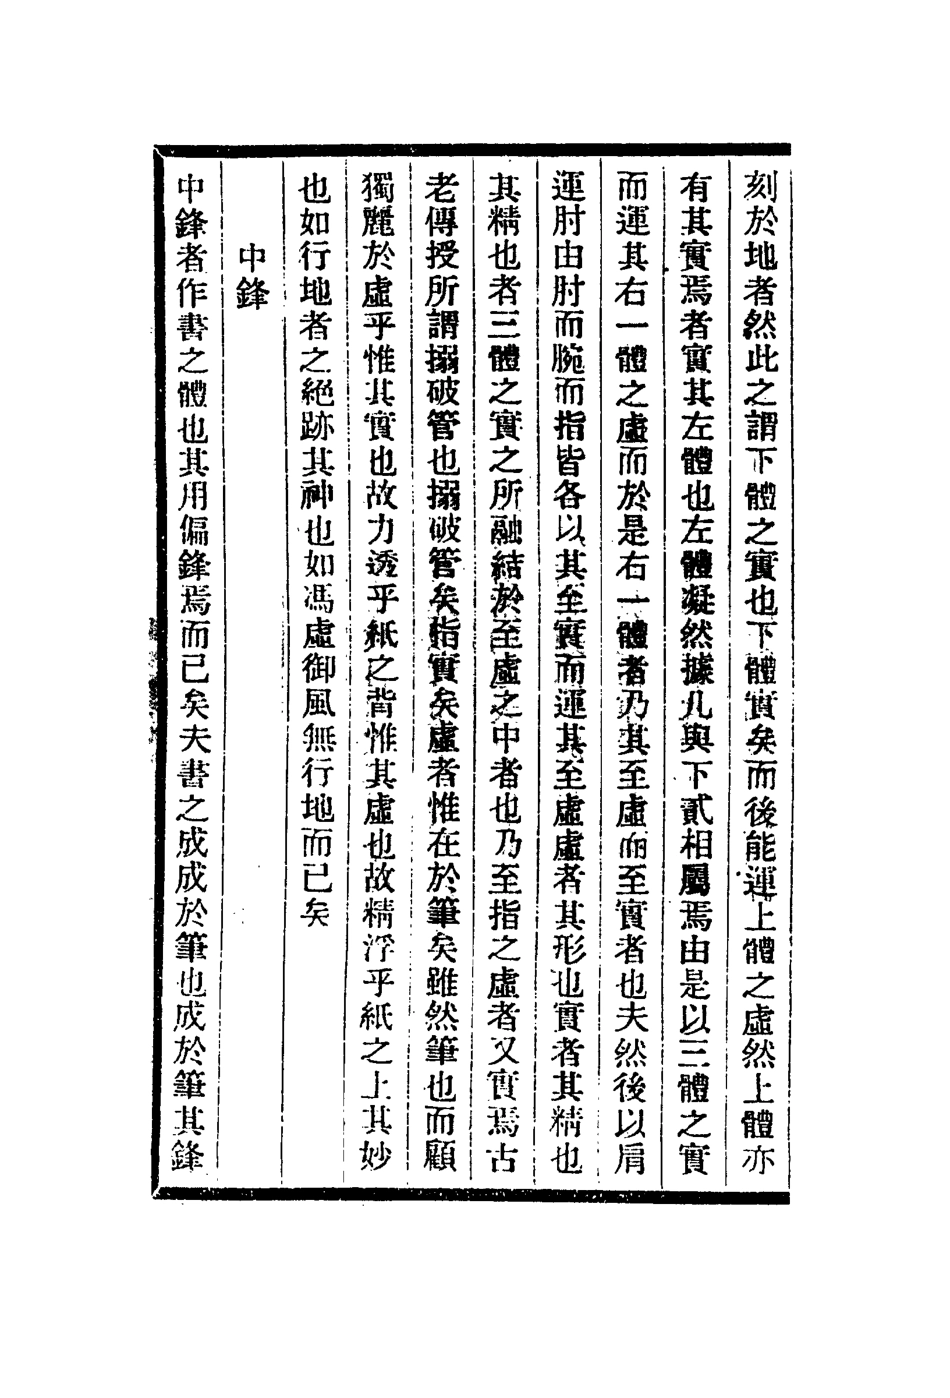 刻於地者然此之謂下體之實也下體實矣而後能運上體之虛然上體亦
有其實焉者實其左體也左體凝然據几與下貳相屬焉由是以三體之實
而運其右一體之虛而於是右一體者乃其至虛而至實者也夫然後以肩
運肘由肘而腕而指皆各以其至實而運其至虛虛者其形也實者其精也
其精也者三體之實之所融結於至虛之中者也乃至指之虛者又實焉古
老傳授所謂搦破管也搦破管矣指實矣虛者惟在於筆矣雖然筆也而顧
獨麗於虛乎惟其實也故力透乎紙之背惟其虛也故精浮乎紙之上其妙
也如行地者之絕跡其神也如馮虛御風無行地而已矣
中鋒
中鋒者作書之體也其用偏鋒焉而已矣夫書之成成於筆也成於筆其鋒